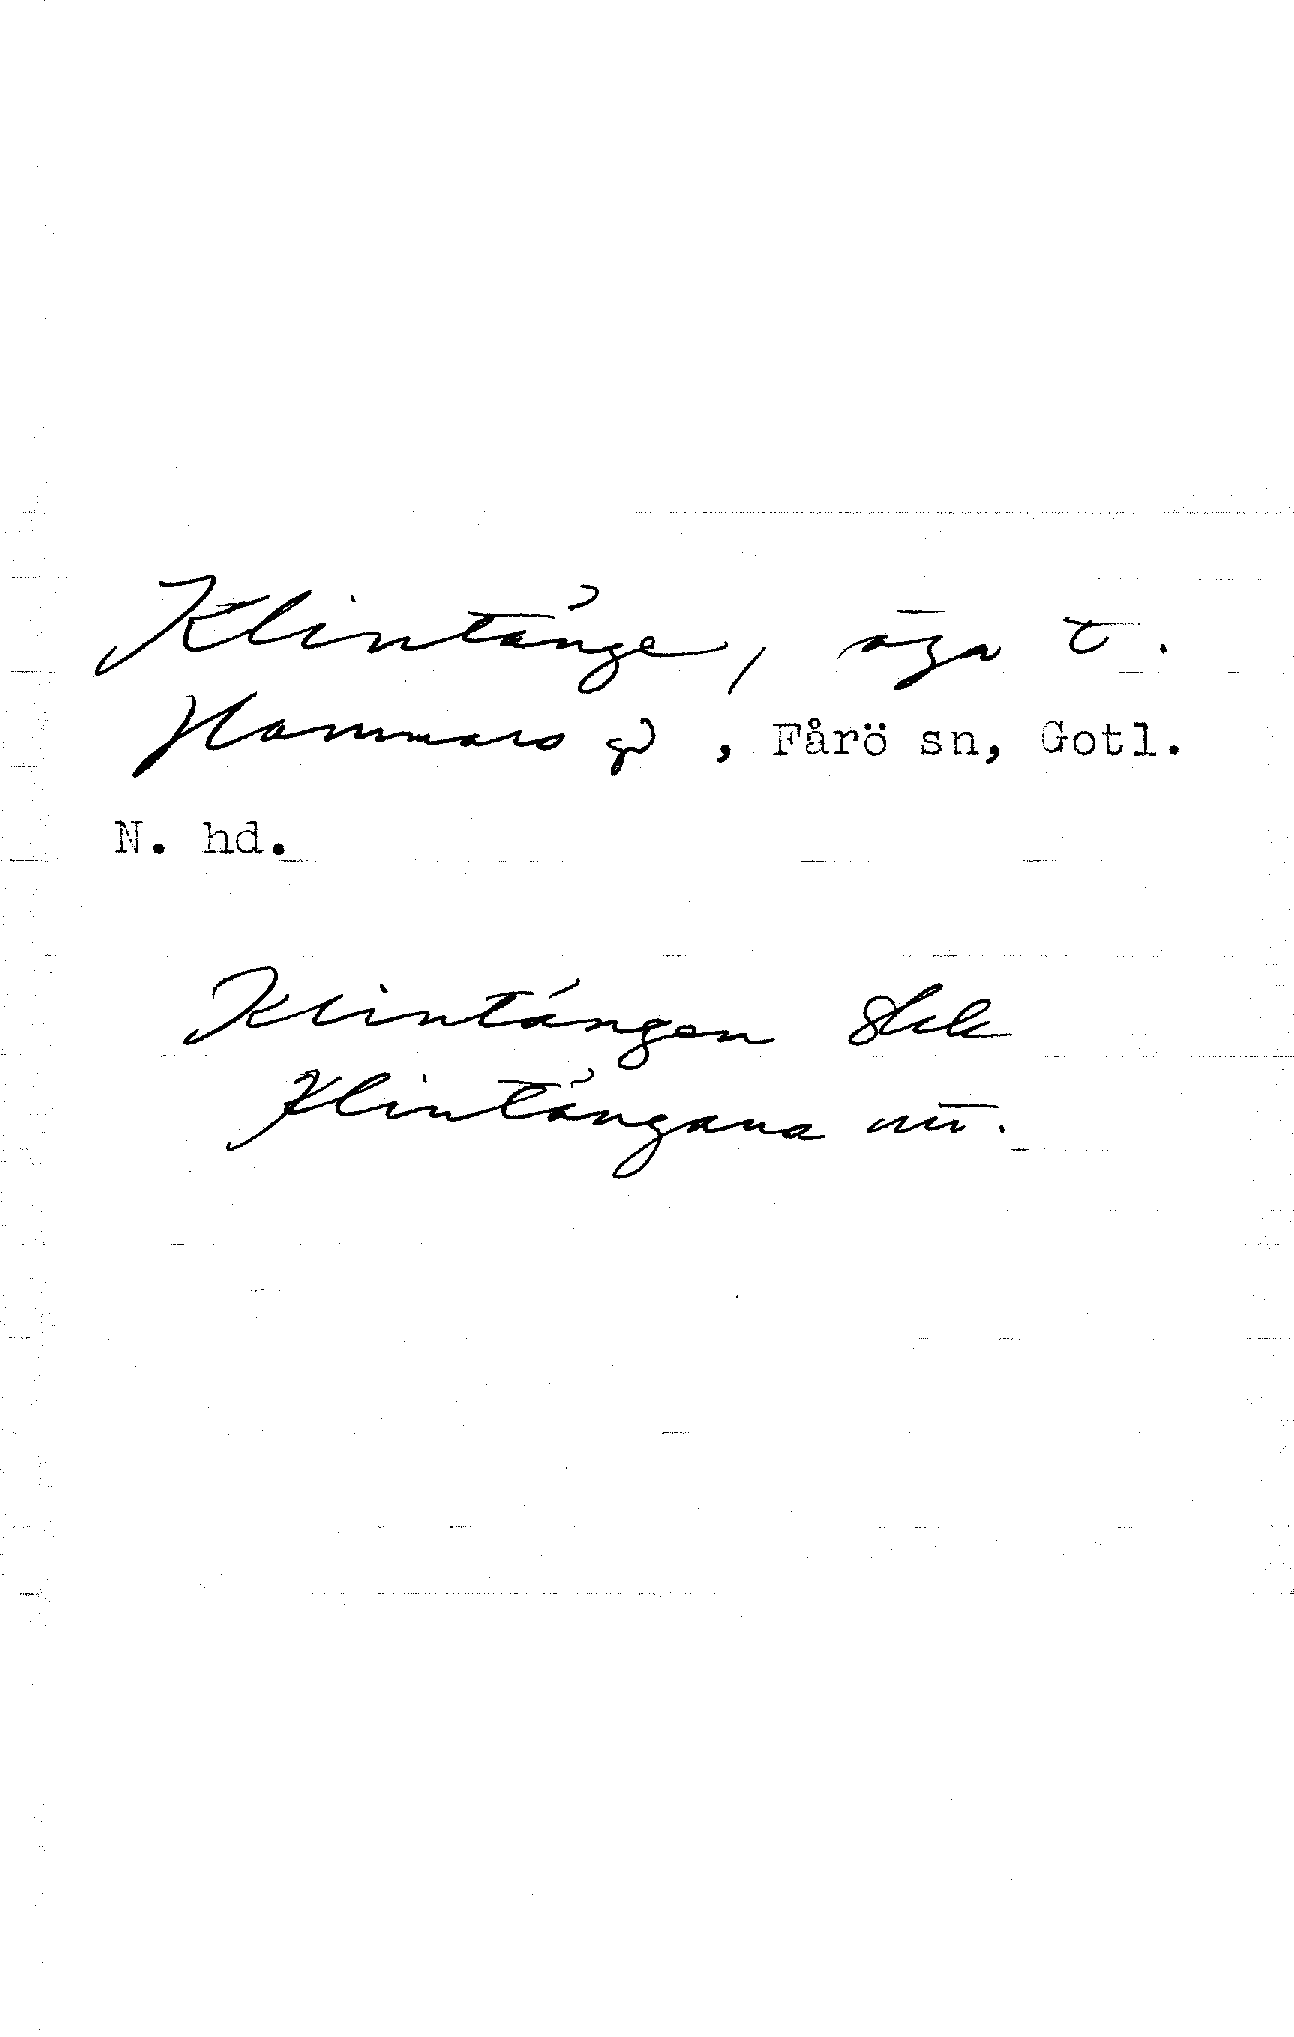 Klintänge, äga t.
Hammars gd, Fårö sn, Gotl.
N. hd.
Klintängen Skk
Klintängana